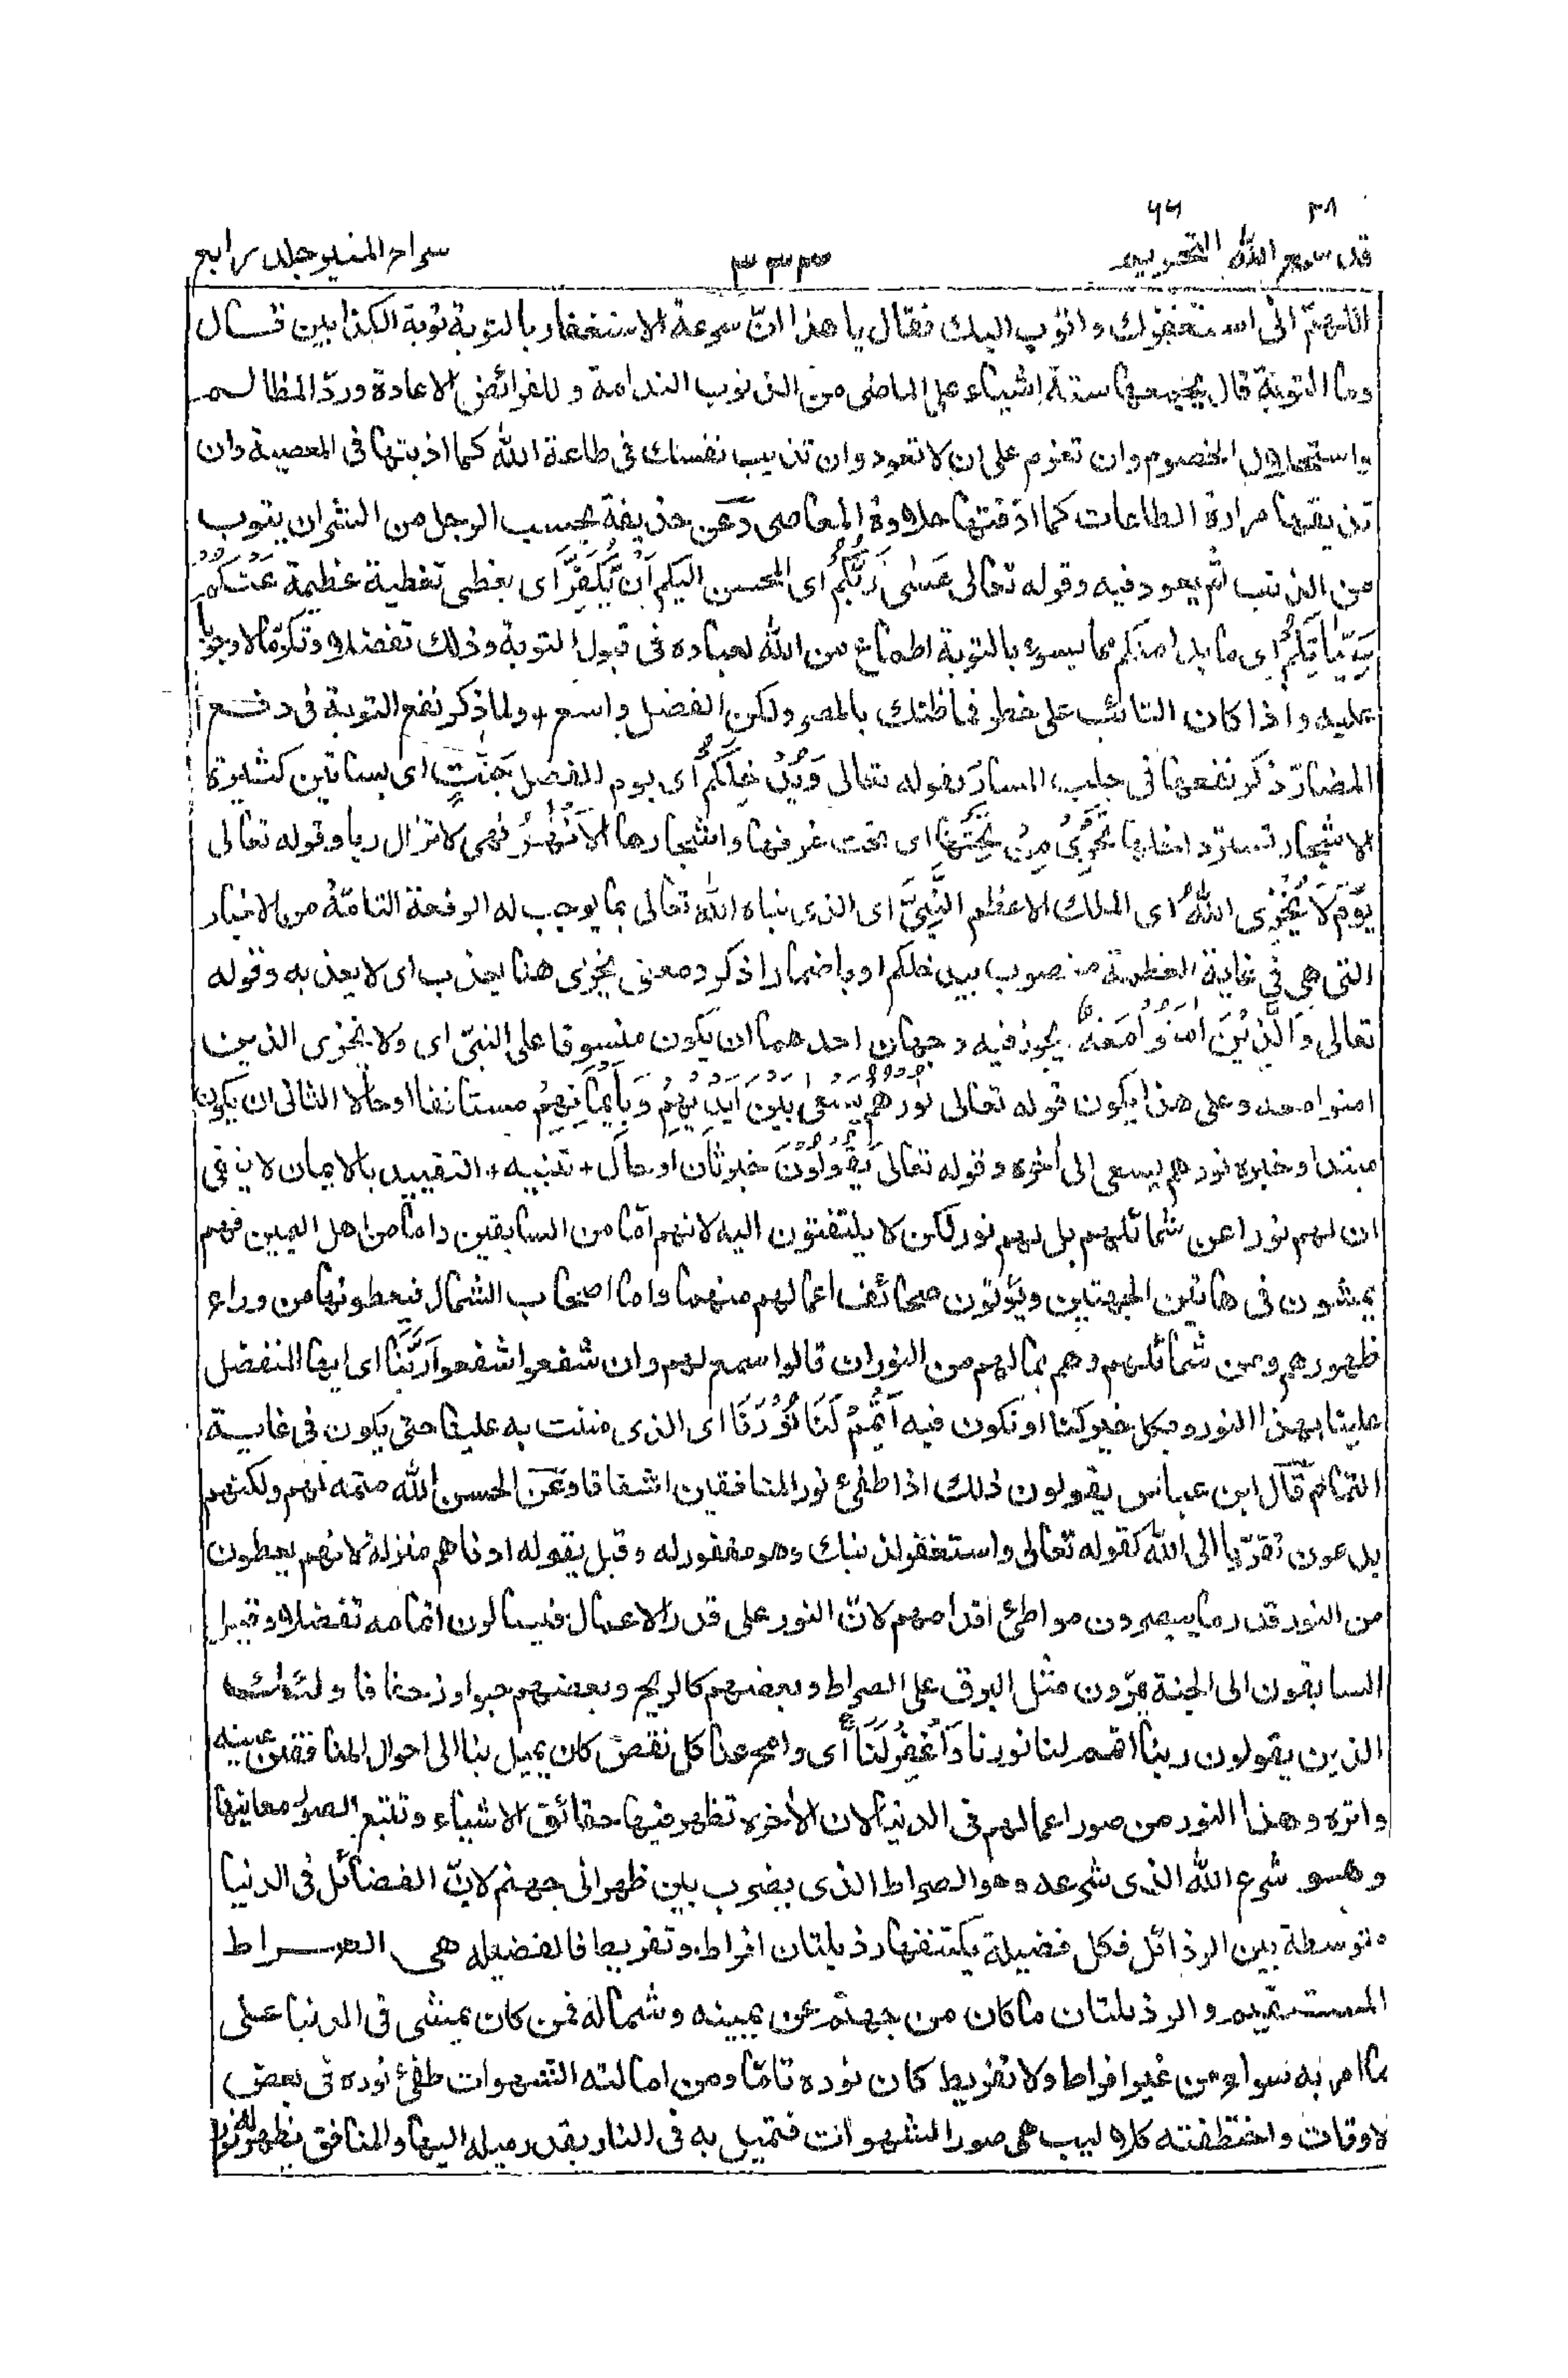 ٢٨ ٦٦
قد سمع الله التحريم ٣٣٣ سراج المنير جلد رابع
اللهم انى استغفرك واتوب اليك فقال يا هذا انّ سرعة الاستغفار بالتوبة توبة الكذابين قال
وما التوبة قال يجمعها ستة اشياء على الماضى من الذنوب الندامة وللفرائض الاعادة وردّ المظالم
واستحلال الخصوم وان تعزم على ان لا تعود وان تذيب نفسك فى طاعة الله كما اذبتها فى المعصية وان
تذيقها مرارة الطاعات كما اذقتها حلاوة المعاصى وعن حذيفة بحسب الرجل من الشر ان يتوب
من الذنب ثم يعود فيه وقوله تعالى عَسٰى رَبُّكُمْ اى المحسن اليكم اَنْ يُّكَفِّرَ اى يغطى تغطية عظيمة عَنْكُمْ
سَيِّاٰتِكُمْ اى ما بدا منكم مما يسوء بالتوبة اطماع من الله لعباده فى قبول التوبة وذلك تفضلا وتكرما لا وجوبا
عليه واذا كان التائب على خطر فما ظنك بالمصر ولكن الفضل واسع + ولما ذكر نفع التوبة فى دفع
المضارّ ذكر نفعها فى جلب المسارّ بقوله تعالى وَيُدْخِلَكُمْ اى يوم الفصل جَنّٰتٍ اى بساتين كثيرة
الاشجار تستر داخلها تَجْرِىْ مِنْ تَحْتِهَا اى تحت غرفها واشجارها الْاَنْهٰرُ فهى لا تزال ريا وقوله تعالى
يَوْمَ لَا يُخْزِى اللّٰهُ اى الملك الاعظم النَّبِىَّ اى الذى نباه الله تعالى بما يوجب له الرفعة التامّة من الاخبار
التى هى فى غاية العظمة منصوب بيدخلكم او باضمار اذكر ومعنى يخزى هنا يعذب اى لا يعذبه وقوله
تعالى وَالَّذِيْنَ اٰمَنُوْا مَعَهٗ يجوز فيه وجهان احدهما ان يكون منسوقا على النبىّ اى ولا يخزى الذين
امنوا معه وعلى هذا يكون قوله تعالى نُوْرُهُمْ يَسْعٰى بَيْنَ اَيْدِيْهِمْ وَبِاَيْمَانِهِمْ مستانفا او حالا الثانى ان يكون
مبتدا وخبره نورهم يسعى الى اخره وقوله تعالى يَقُوْلُوْنَ خبر ثان او حال + تنبيه + التقييد بالايمان لا ينفى
ان لهم نورا عن شمائلهم بل لهم نور لكن لا يلتفتون اليه لانهم امّا من السابقين واما من اهل اليمين فهم
يمشون فى هاتين الجهتين ويؤتون صحائف اعمالهم منهما واما اصحاب الشمال فيعطونها من وراء
ظهورهم وعن شمائلهم وهم بما لهم من النور ان قالوا سمع لهم وان شفعوا شفعوا رَبَّنَا اى ايها المتفضل
علينا بهذا النور وبكل خير كنا او نكون فيه اَتْمِمْ لَنَا نُوْرَنَا اى الذى مننت به علينا حتى يكون فى غاية
التمام قال ابن عباس يقولون ذلك اذا طفئ نور المنافقين اشفاقا وعن الحسن الله متمه لهم ولكنهم
يدعون تقرّبا الى الله كقوله تعالى واستغفر لذنبك وهو مغفور له وقيل يقوله ادناهم منزلة لانهم يعطون
من النور قدر ما يبصرون مواطئ اقدامهم لانّ النور على قدر الاعمال فيسالون اتمامه تفضلا وقيل
السابقون الى الجنة يمرّون مثل البرق على الصراط وبعضهم كالريح وبعضهم حبوا وزحفا فاولئك
الذين يقولون ربنا اتمم لنا نورنا وَاغْفِرْ لَنَا اى وامح عنا كل نقص كان يميل بنا الى احوال المنافقين عينه
واثره وهذا النور من صور اعمالهم فى الدنيا لان الاخرة تظهر فيها حقائق الاشياء وتتبع الصور معانيها
وهو شرع الله الذى شرعه وهو الصراط الذى يضرب بين ظهرانى جهنم لانّ الفضائل فى الدنيا
متوسطة بين الرذائل فكل فضيلة يكتنفها رذيلتان افراط وتفريط فالفضيلة هى الصراط
المستقيم والرذيلتان ما كان من جهنم عن يمينه وشماله فمن كان يمشى فى الدنيا على
ما امر به سواء من غير افراط ولا تفريط كان نوره تامّا ومن امالته الشهوات طفئ نوره فى بعض
لاوقات واختطفته كلاليب هى صور الشهوات فتميل به فى النار بقدر ميله اليها والمنافق يظهر له نور